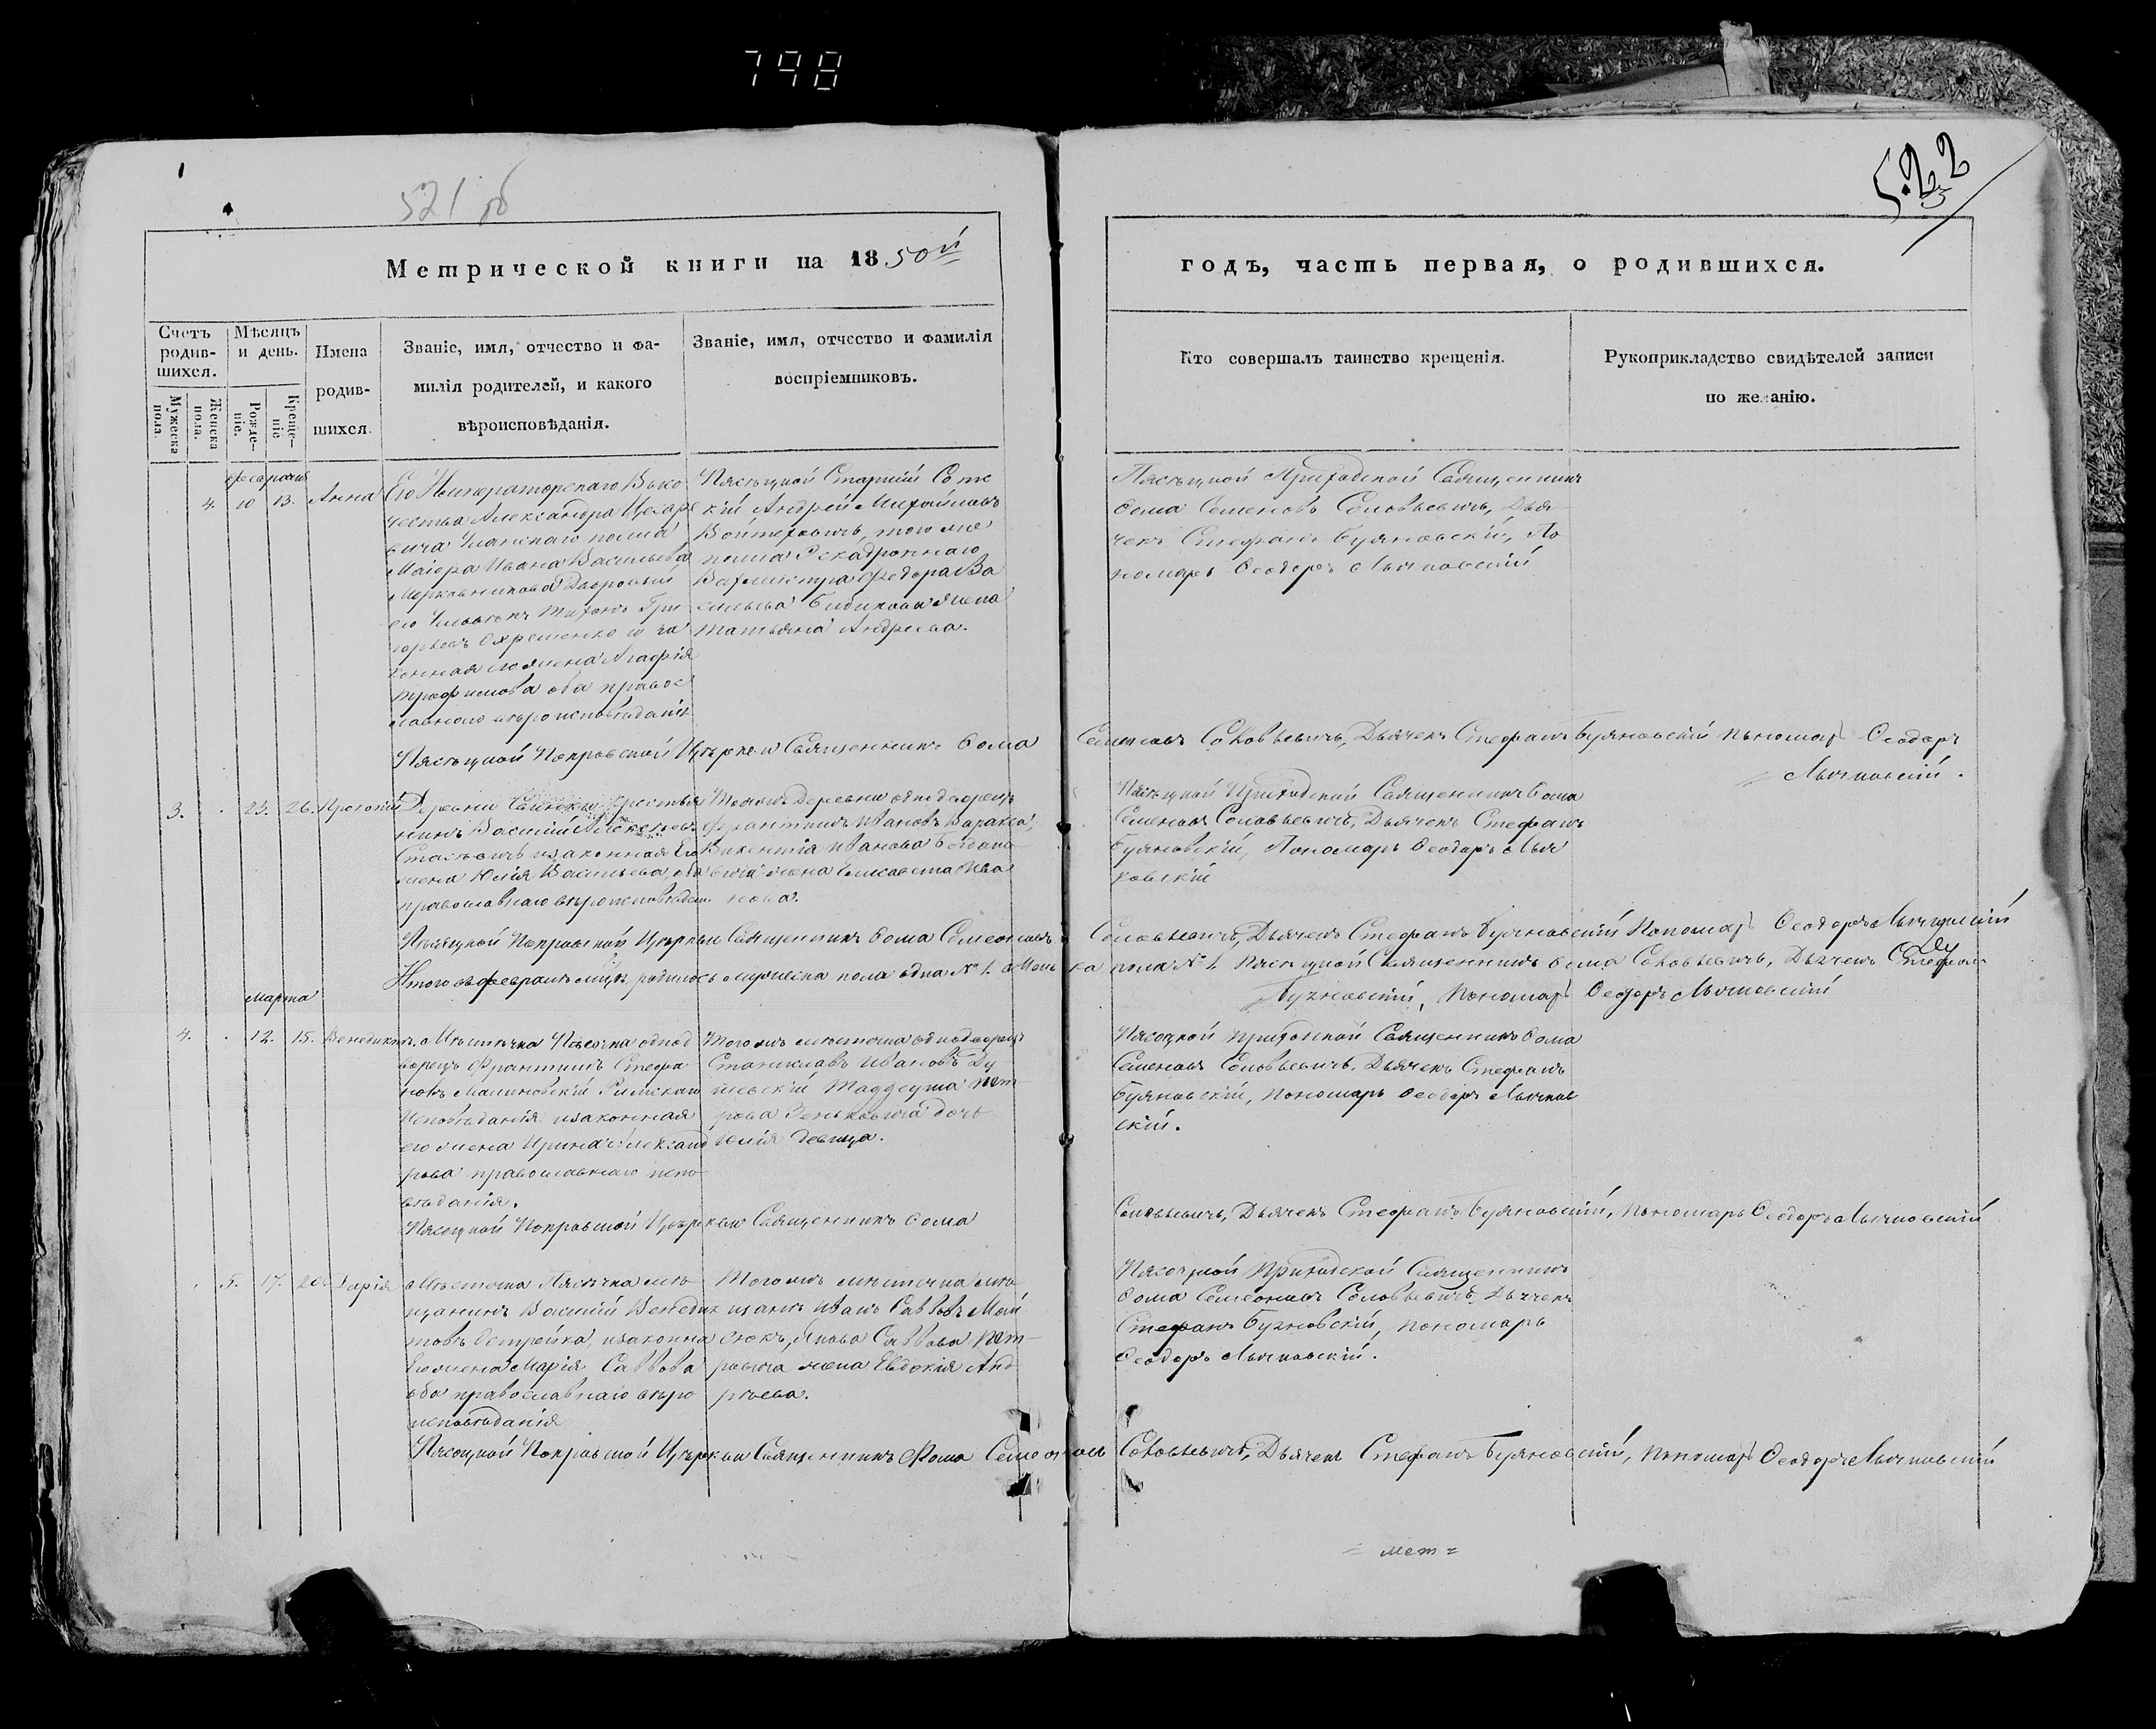 798
521 об
522
Метрической книги на 1850й
годъ, часть первая, о родившихся.
Счетъ родив-шихся.
Мѣсяцъ и день.
Имена
родив-
шихся.
Званіе, имя, отчество и фа-
милія родителей, и какого
вѣроисповѣданія.
Званіе, имя, отчество и фамилія
воспріемниковъ.
Кто совершалъ таинство крещенія.
Рукоприкладство свидѣтелей записи
по желанію.
Мужеска пола.
Женска пола.
Рожде-ніе.
Креще-ніе
февраля
4. 10 13. Анна
Его Императорскаго Высо
чества Александра Цесаре
вича Уланскаго полка
Маіора Ивана Васильева
Дворовый
его Тихонъ Гри
горьевъ Охременко и за
конная его жена Агафія
Трофимова оба правос
лавнаго вѣроисповѣданія.
Пясецкой Старшій
Андрей Михайловъ
Войтеховичъ, того же
полка Эскадроннаго
Вахмистра Федора Ва
сильева жена
Татьяна Андреева.
Пясецкой Приходской Священникъ
Ѳома Семеновъ Соловьевичъ, Дья
чекъ Стефанъ Буяновскій, По
номарь Ѳеодоръ Лычковскій
Пясецкой Покровской Церкви Священникъ Ѳома Семеновъ Соловьевичъ, Дьячекъ Стефанъ Буяновскій пономарь Ѳеодоръ
Лычковскій.
3. . 23. 26. Прокопій
Деревни крестья
нинъ Василій
изаконная Его
жена Юлія Васильева, оба
православнаго вѣроисповѣдан.
Тоежъ Деревни однодворецъ
Францишекъ Ивановъ
Викентія Иванова
жена Елисавета Ива
нова.
Пясецкой Приходской Священникъ Ѳома
Семеновъ Соловьевичъ, Дьячекъ Стефанъ
Буяновскій, Пономарь Ѳеодоръ Лыч
ковскій
Пясецкой Покровской Церкви Священникъ Ѳома Семеоновъ Соловьевичъ, Дьячекъ Стефанъ Буяновскій Пономарь Ѳеодоръ Лычковскій
Итого въ февралѣ мцѣ родилось мужеска пола одна № 1. Женска пола № 1. Пясецкой Священникъ Ѳома Соловьевичъ, Дьячекъ Стефанъ
Буяновскій, Пономарь Ѳеодоръ Лычковскій
марта
4. . 12. 15. Венедиктъ
Мѣстечка Пясечна однод
ворецъ Францишекъ Стефа
новъ Малиновскій Римскаго
Исповѣданія изаконная
его жена Ирина Александ
рова православнаго испо
вѣданія.
Тогожъ мѣстечка однодворецъ
Станиславъ Ивановъ
Таддеуша Пет
рова Зеньковича дочь
Юлія девица.
Пясецкой Приходской Священникъ Ѳома
Семеновъ Соловьевичъ. Дьячекъ Стефанъ
Буяновскій, Пономарь Ѳеодоръ Лычков
скій.
Пясецкой Покровской Церкви Священникъ Ѳома Соловьевичъ, Дьячекъ Стефанъ Буяновскій, Пономарь Ѳеодоръ Лычковскій
. 5. 17. 20. Дарія
Мѣстечка Пясѣчна мѣ
щанинъ Василій Венедик
товъ Острейка, изаконна
Его жена Марія Саввова
оба православнаго вѣро
исповѣданія
Тогожъ мѣстечка мѣ
щанинъ Иванъ Савовъ Мой
сюкъ, Якова Саввова Пет
ровича жена Евдокія Анд
рѣева.
Пясецкой Приходской Священникъ
Ѳома Семеоновъ Соловьевичъ, Дьячекъ
Стефанъ Буяновскій, Пономарь
Ѳеодоръ Лычковскій.
Пясецкой Покровской Церкви Священникъ Ѳома Семеоновъ Соловьевичъ, Дьячекъ Стефанъ Буяновскій, Пономарь Ѳеодоръ Лычковскій
= мет =